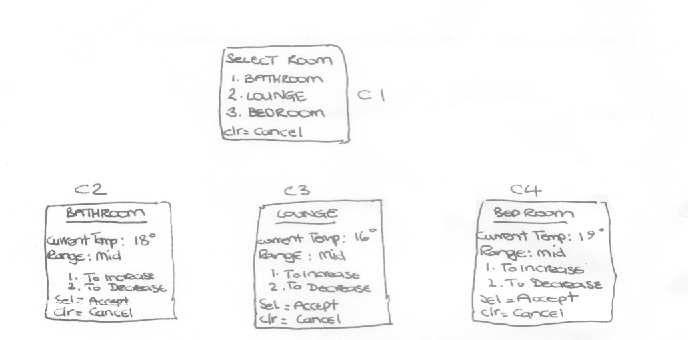 SELECT ROOM
1. BATHROOM
2. LOUNGE
3. BEDROOM
clr = Cancel
C1
C2
BATHROOM
Current Temp: 18°
Range: Mid
1. To Increase
2. To Decrease
Sel = Accept
clr = Cancel
C3
LOUNGE
Current Temp: 16°
Range: Mid
1. To Increase
2. To Decrease
Sel = Accept
clr = Cancel
C4
BEDROOM
Current Temp: 19°
Range: Mid
1. To Increase
2. To Decrease
Sel = Accept
clr = Cancel